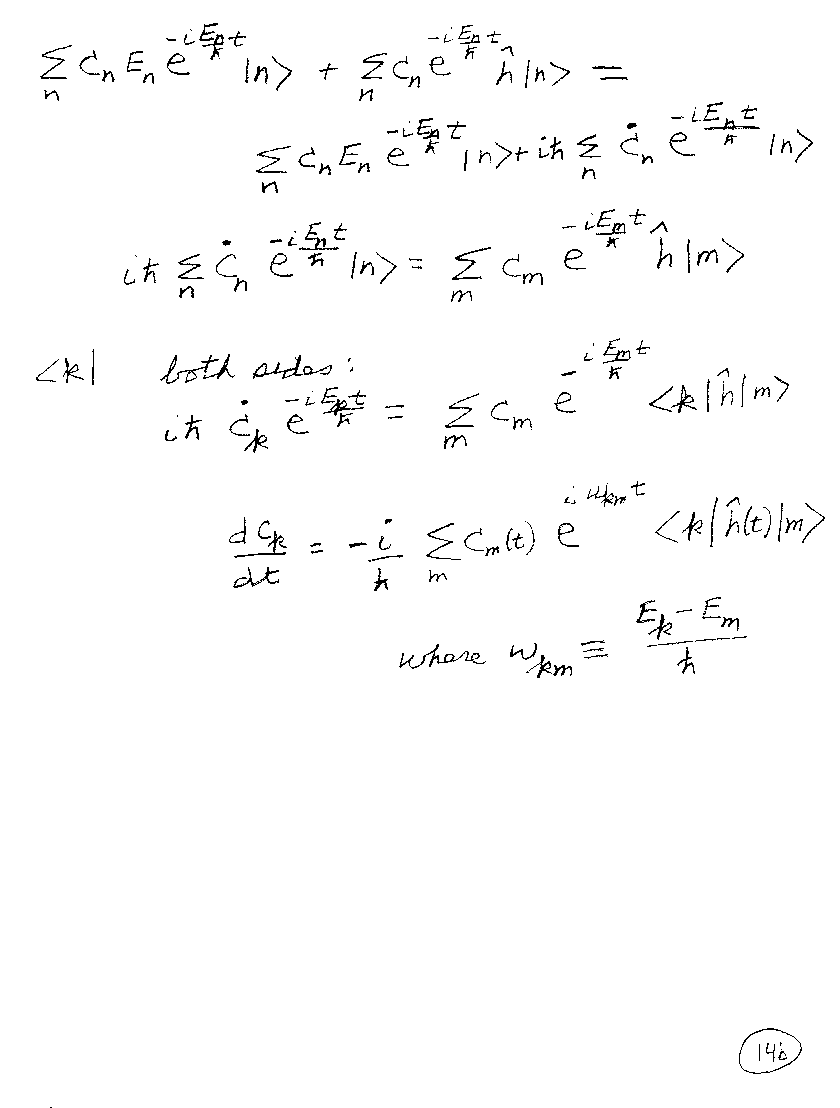 ∑_n C_n E_n e^{-i E_n t/ħ} |n> + ∑_n C_n e^{-i E_n t/ħ} ĥ |n> =
∑_n C_n E_n e^{-i E_n t/ħ} |n> + iħ ∑_n Ċ_n e^{-i E_n t/ħ} |n>
iħ ∑_n Ċ_n e^{-i E_n t/ħ} |n> = ∑_m C_m e^{-i E_m t/ħ} ĥ |m>
<k| both sides:
iħ Ċ_k e^{-i E_k t/ħ} = ∑_m C_m e^{-i E_m t/ħ} <k|ĥ|m>
dC_k/dt = -i/ħ ∑_m C_m(t) e^{i ω_km t} <k|ĥ(t)|m>
where ω_km ≡ (E_k - E_m)/ħ